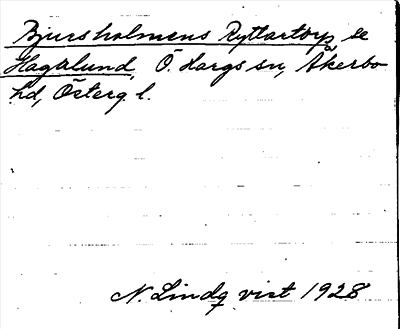 Bjursholmens Ryttartorp se
Hagalund, Ö. Hargs sn, Åkerbo
hd, Österg l.
N. Lindqvist 1928